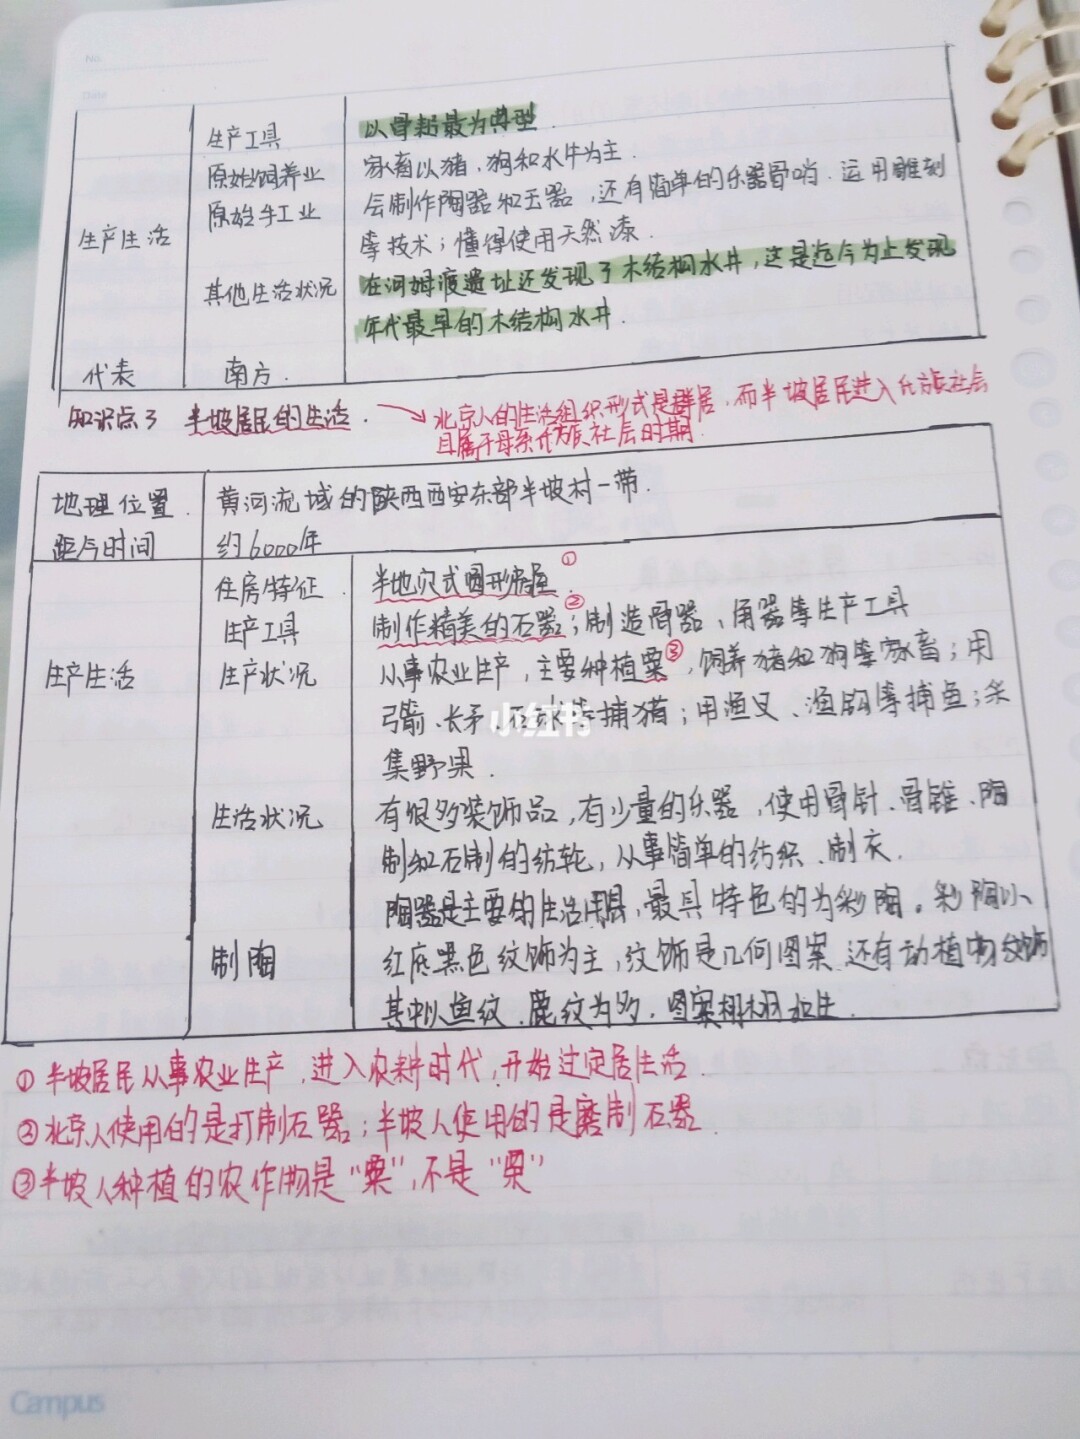 No.
Date
生产工具 以骨耜最为典型.
原始饲养业 家畜以猪、狗和水牛为主.
原始手工业 会制作陶器和玉器，还有简单的乐器骨哨．运用雕刻
生产生活 等技术；懂得使用天然漆.
其他生活状况 在河姆渡遗址还发现了木结构水井，这是迄今为止发现
年代最早的木结构水井.
代表 南方.
知识点3 半坡居民的生活. → 北京人的生活组织形式是群居，而半坡居民进入氏族社会
且属于母系氏族社会时期.
地理位置. 黄河流域的陕西西安东部半坡村一带.
距今时间 约6000年
住房特征. 半地穴式圆形房屋①.
生产工具 制作精美的石器②；制造骨器、角器等生产工具
生产生活 生产状况 从事农业生产，主要种植粟③，饲养猪和狗等家畜；用
弓箭、长矛、石球等捕猎；用渔叉、渔钩等捕鱼；采
小红书
集野果.
生活状况 有很多装饰品，有少量的乐器，使用骨针、骨锥、陶
制和石制的纺轮，从事简单的纺织、制衣.
陶器是主要的生活用具，最具特色的为彩陶。彩陶以
制陶 红底黑色纹饰为主，纹饰是几何图案，还有动植物纹饰
其中以鱼纹、鹿纹为多，图案栩栩如生.
① 半坡居民从事农业生产，进入农耕时代，开始过定居生活.
② 北京人使用的是打制石器；半坡人使用的是磨制石器
③ 半坡人种植的农作物是“粟”，不是“栗”
Campus